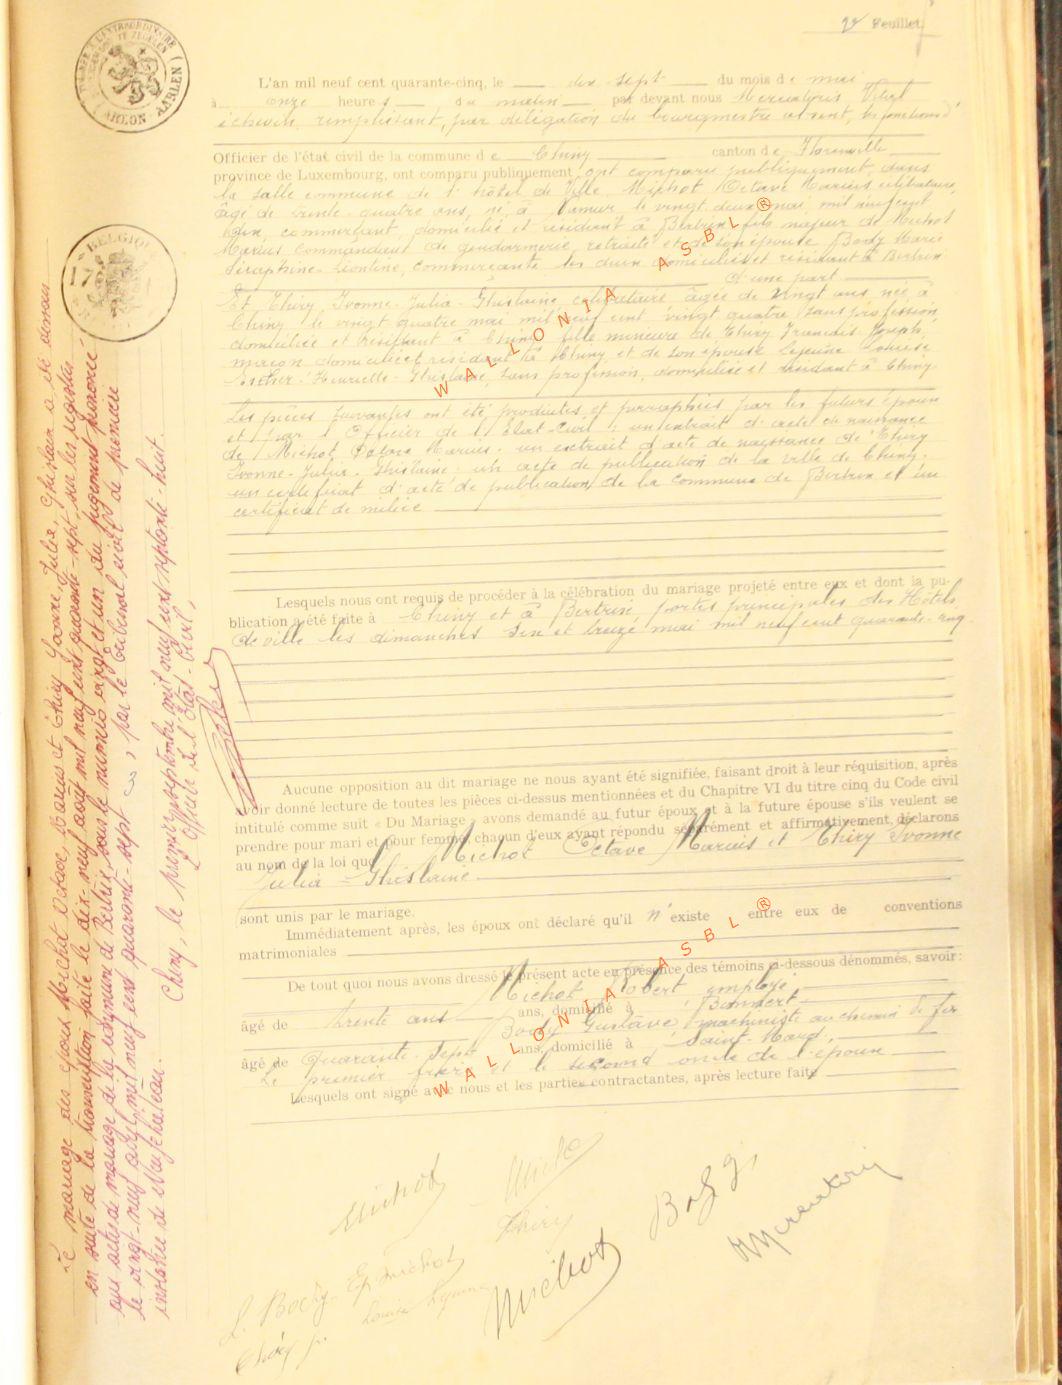 2e Feuillet
L'an mil neuf cent quarante-cinq, le dix sept du mois de mai
à onze heures, du matin par devant nous Mercatoris
échevin remplissant, par délégation du bourgmestre absent, les fonctions d'
Officier de l'état civil de la commune de Chiny canton de Florenville
province de Luxembourg, ont comparu publiquement, dans
la salle commune de l'hôtel de Ville Michot Octave Marius célibataire,
âgé de trente-quatre ans, né à Namur le vingt deux mai mil neuf cent
dix, commerçant, domicilié et résidant à Bertrix fils majeur de Michot
Marius commandant de gendarmerie, retraité et de son épouse Body Marie
Séraphine-Léontine, commerçante les deux domiciliés et résidant à Bertrix
d'une part
Et Thiry Yvonne-Julia-Ghislaine célibataire âgée de vingt ans, née à
Chiny le vingt quatre mai mil neuf cent vingt quatre, sans profession,
domiciliée et résidant à Chiny fille mineure de Thiry François-Joseph,
maçon domicilié et résidant à Chiny et de son épouse Lejeune Louise
Henriette-Ghislaine, sans profession, domiciliée et résidant à Chiny
Les pièces suivantes ont été produites et paraphées par les futurs époux
et par l'Officier de l'Etat-Civil : un extrait d'acte de naissance
de Michot Octave Marius. un extrait d'acte de naissance de Thiry
Yvonne-Julia-Ghislaine. un acte de publication de la ville de Chiny.
un certificat d'acte de publication de la commune de Bertrix et un
certificat de milice
Lesquels nous ont requis de procéder à la célébration du mariage projeté entre eux et dont la pu-
blication a été faite à Chiny et à Bertrix portes principales des Hôtels
de ville les dimanches six et treize mai mil neuf cent quarante-cinq.
Aucune opposition au dit mariage ne nous ayant été signifiée, faisant droit à leur réquisition, après
avoir donné lecture de toutes les pièces ci-dessus mentionnées et du Chapitre VI du titre cinq du Code civil
intitulé comme suit « Du Mariage » avons demandé au futur époux et à la future épouse s'ils veulent se
prendre pour mari et pour femme, chacun d'eux ayant répondu séparément et affirmativement, déclarons
au nom de la loi que Michot Octave Marius et Thiry Yvonne
Julia-Ghislaine
sont unis par le mariage.
Immédiatement après, les époux ont déclaré qu'il n'existe entre eux de conventions
matrimoniales
De tout quoi nous avons dressé le présent acte en présence des témoins ci-dessous dénommés, savoir :
Michot Robert employé
âgé de trente ans ans, domicilié à
Body Gustave, machiniste au chemin de fer
âgé de Quarante-Sept ans, domicilié à Saint-Mard,
Le premier frère et le second oncle de l'époux
Lesquels ont signé avec nous et les parties contractantes, après lecture faite
Michot
Thiry
Michot
Body G.
Mercatoris
L. Body
Ep. Michot
Louise Lejeune
Thiry
Le mariage des époux Michot Octave, Marius et Thiry Yvonne, Julia, Ghislaine a été dissous
en suite de la transcription faite le dix-neuf août mil neuf cent quarante-sept, sur les registres
aux actes de mariage de la commune de Bertrix, sous le numéro vingt et un du jugement prononcé
le vingt-neuf avril mil neuf cent quarante-sept, par le tribunal civil de première
instance de Neufchâteau.
Chiny, le premier septembre mil neuf cent septante-huit
L'Officier de l'Etat-Civil,
ARLON
AARLEN
BELGIQUE
WALLONIA ASBL ®
WALLONIA ASBL ®